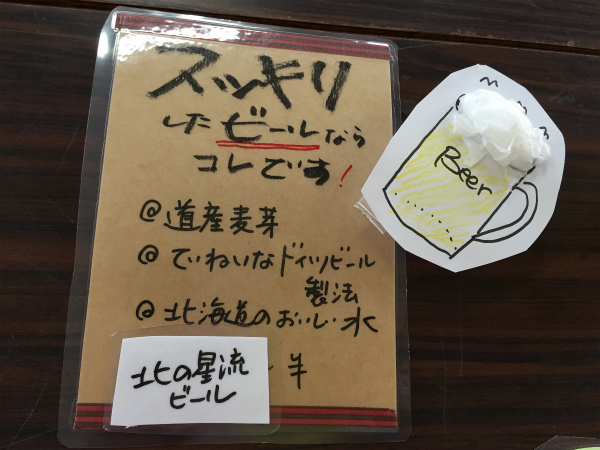 スッキリ
したビールなら
コレです!
@道産麦芽
@ていねいなドイツビール
製法
@北海道のおいしい水
北の星流
ビール
Beer